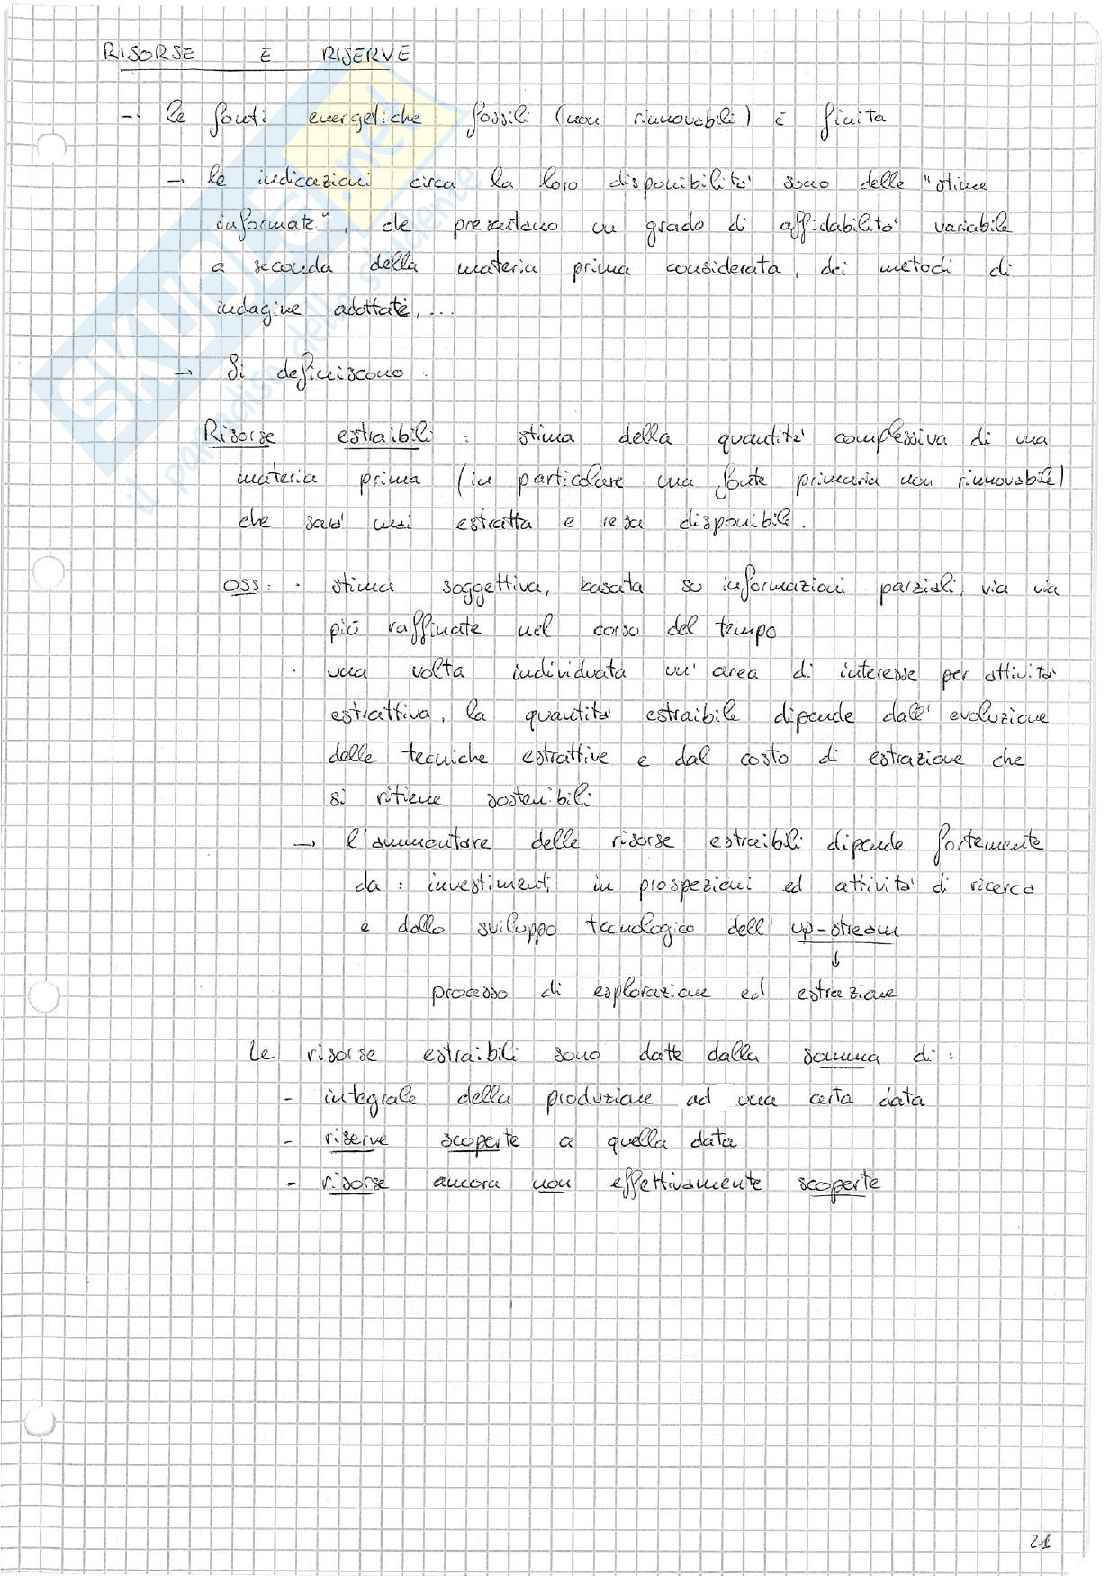 RISORSE E RISERVE
→ le fonti energetiche fossili (non rinnovabili) è finita
→ le indicazioni circa la loro disponibilità sono delle "stime
informate", che presentano un grado di affidabilità variabile
a seconda della materia prima considerata, dei metodi di
indagine adottate, ...
→ Si definiscono.
Risorse estraibili : stima della quantità complessiva di una
materia prima (in particolare una fonte primaria non rinnovabile)
che sarà mai estratta e resa disponibile.
OSS: · stima soggettiva, basata su informazioni parziali, via via
più raffinate nel corso del tempo
· una volta individuata un'area di interesse per attività
estrattiva, la quantità estraibile dipende dall'evoluzione
delle tecniche estrattive e dal costo di estrazione che
si ritiene sostenibili
→ l'ammontare delle risorse estraibili dipende fortemente
da : investimenti in prospezioni ed attività di ricerca
e dallo sviluppo tecnologico dell'up-stream
↓
processo di esplorazione ed estrazione
Le risorse estraibili sono date dalla somma di :
- integrale della produzione ad una certa data
- riserve scoperte a quella data
- risorse ancora non effettivamente scoperte
21
SKUOLA.net